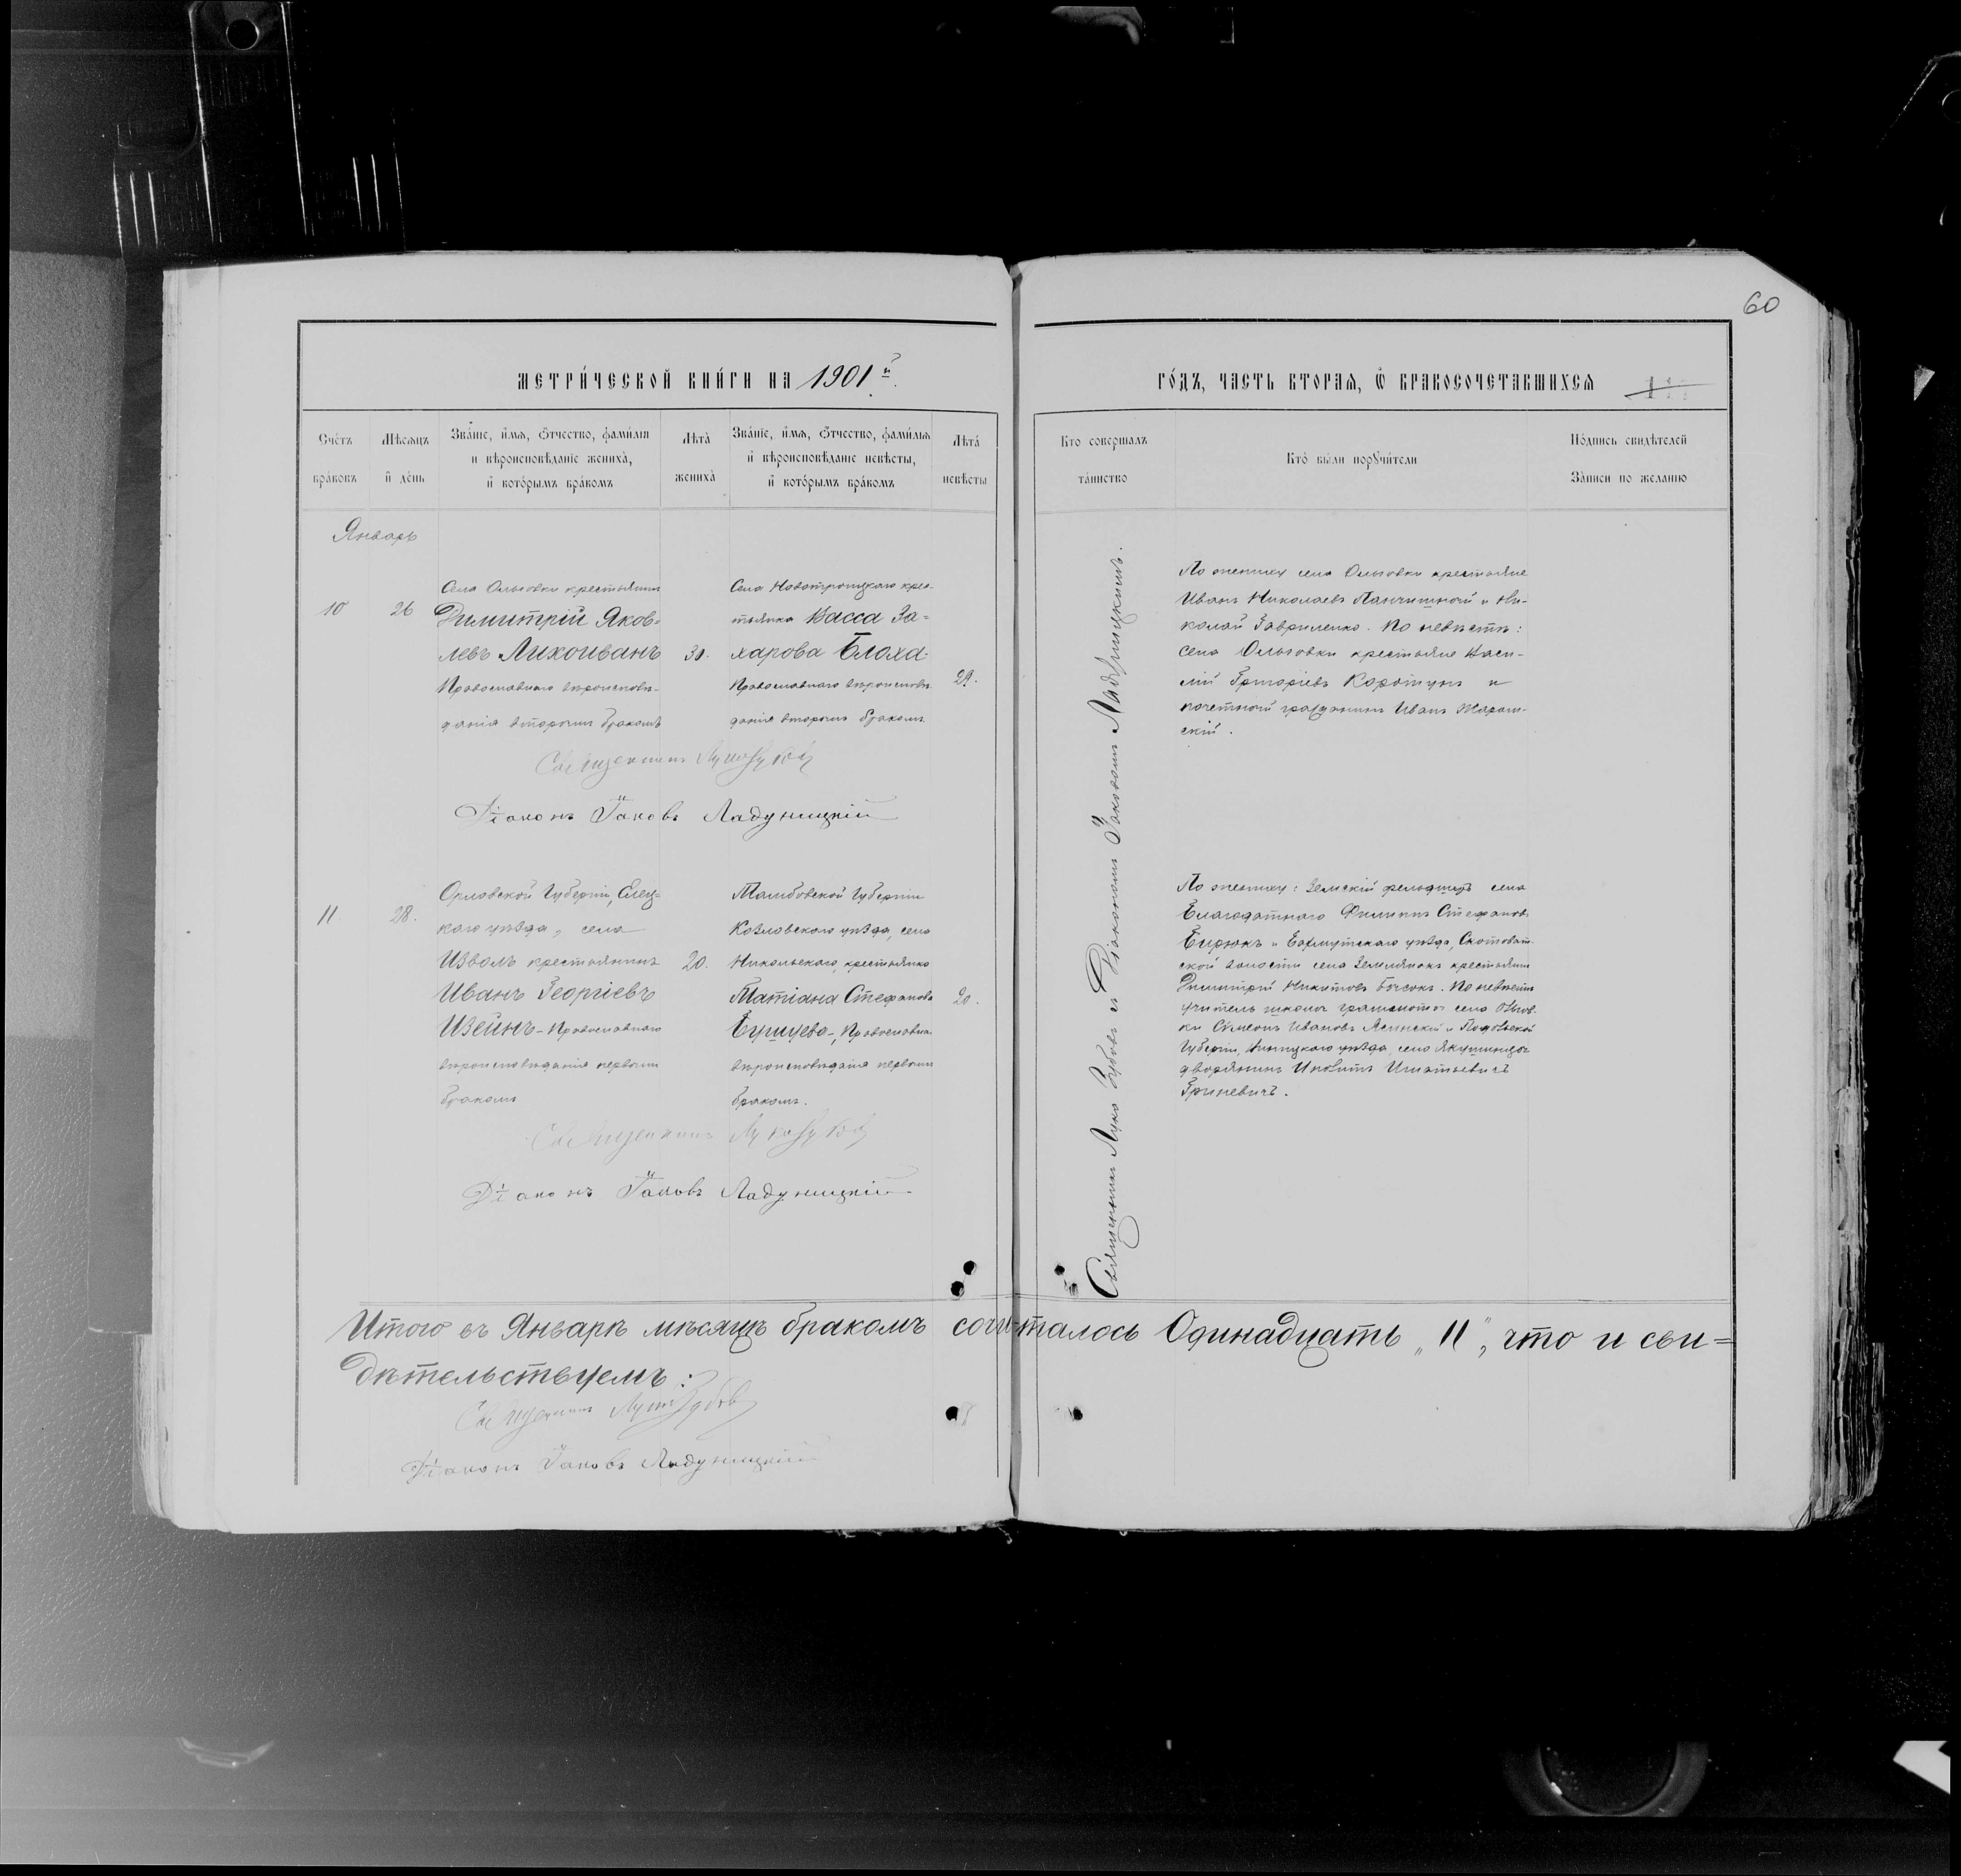 60
МЕТРИ́ЧЕСКОЙ КНИ́ГИ НА 1901й.
ГО́ДЪ, ЧАСТЬ ВТОРАѦ, Ѡ҆ БРАКОСОЧЕТАВШИХСѦ
Сче́тъ
бра́ковъ
Мѣсѧцъ
и҆ де́нь
Зва́нїе, и҆́мѧ, ѻ҆́тчество, фами́лїѧ
и вѣроисповѣ́данїе жениха̀,
и҆ кото́рымъ бра́комъ
Лѣта̀
жениха̀
Зва́нїе, и҆́мѧ, ѻ҆́тчество, фами́лїѧ
и҆ вѣроисповѣ́данїе невѣсты,
и҆ кото́рымъ бра́комъ
Лѣта́
невѣсты
Кто совершалъ
та́инство
Кто̀ бы́ли порꙋчи́тели
По́дпись свидѣтелей
За́писи по желанїю
Январь
10
26
Села Ольговки крестьянинъ
Димитрій Яков=
левъ Лихоиванъ
Православнаго вѣроисповѣ-
данія вторымъ бракомъ
30.
Села Новотроицкаго крес-
тьянка Васса За=
харова Блоха-
Православнаго вѣроисповѣ-
данія вторымъ бракомъ
29.
По женихѣ села Ольговки крестьяне
Иванъ Николаевъ Панчишной и Ни-
колай Гавриленко. По невѣстѣ:
села Ольговки крестьяне Васи-
лій Григоріевъ Коротунъ и
почетный гражданинъ Иванъ
скій.
Священникъ Лука Зубовъ
Діаконъ Іаковъ Ладуницкій
11.
28.
Орловской Губерніи, Елец-
каго уѣзда, села
Изволъ крестьянинъ
Иванъ Георгіевъ
Извѣйнъ - Православнаго
вѣроисповѣданія первымъ
бракомъ
20.
Тамбовской Губерніи
Козловскаго уѣзда, села
Никольскаго, крестьянка
Татіана Стефанова
Православна
вѣроисповѣданія первымъ
бракомъ.
20.
По женихѣ: Земскій фельдшеръ села
Благодатнаго Филиппъ Стефановъ
Бирюкъ и Бахмутскаго уѣзда, Скотоват-
ской волости села Землянокъ крестьянинъ
Димитрій Никитовъ По невѣстѣ
учитель школы грамоты села Ольгов-
ки Сѵмеонъ Ивановъ Ясинскій и Подольской
Губерніи, Винницкаго уѣзда, села Якушинцы
дворянинъ Игнатьевичъ
Гриневичъ.
Священникъ Лука Зубовъ
Діаконъ Іаковъ Ладуницкій
Священникъ Лука Зубовъ съ Діакономъ Іаковомъ Ладуницкимъ.
Итого въ Январѣ мѣсяцѣ бракомъ сочеталось Одинадцать „11“, что и сви=
дѣтельствуемъ:
Священникъ Лука Зубовъ
Діаконъ Іаковъ Ладуницкій